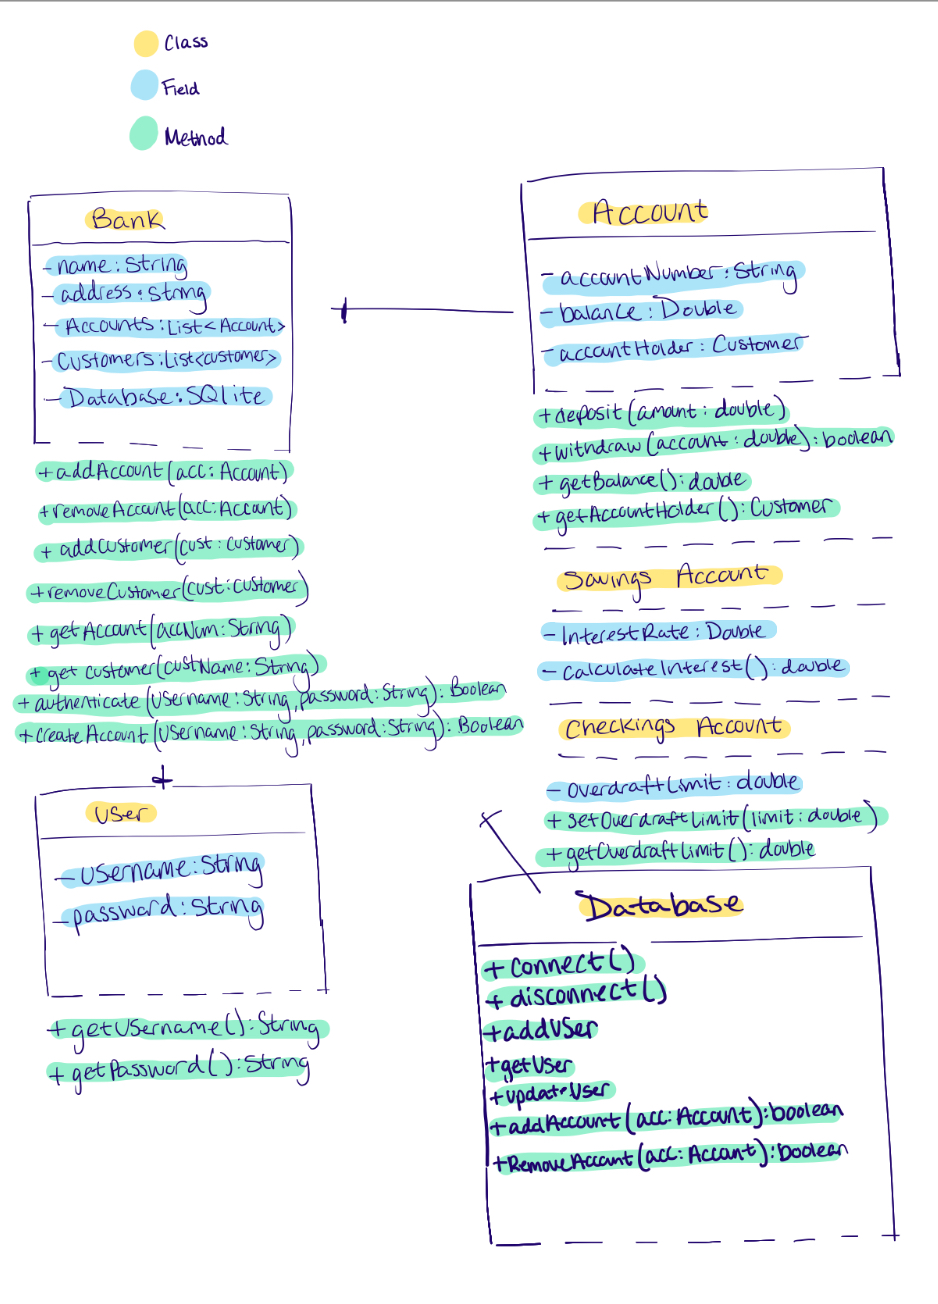 Class
Field
Method
Bank
- name: String
- address: String
- Accounts: List<Account>
- Customers: List<customer>
- Database: SQlite
+ addAccount(acc: Account)
+ removeAccount(acc: Account)
+ addCustomer(cust: customer)
+ removeCustomer(cust: customer)
+ getAccount(accNum: String)
+ get customer(custName: String)
+ authenticate(Username: String, password: String): Boolean
+ createAccount(Username: String, password: String): Boolean
User
- Username: String
- password: String
+ getUsername(): String
+ getPassword(): String
Account
- accountNumber: String
- balance: Double
- accountHolder: Customer
+ deposit(amount: double)
+ withdraw(account: double): boolean
+ getBalance(): double
+ getAccountHolder(): Customer
Savings Account
- InterestRate: Double
- calculateInterest(): double
Checkings Account
- OverdraftLimit: double
+ setOverdraftLimit(limit: double)
+ getOverdraftlimit(): double
Database
+ connect()
+ disconnect()
+ addUser
+ getUser
+ updateUser
+ addAccount(acc: Account): boolean
+ RemoveAccount(acc: Account): boolean